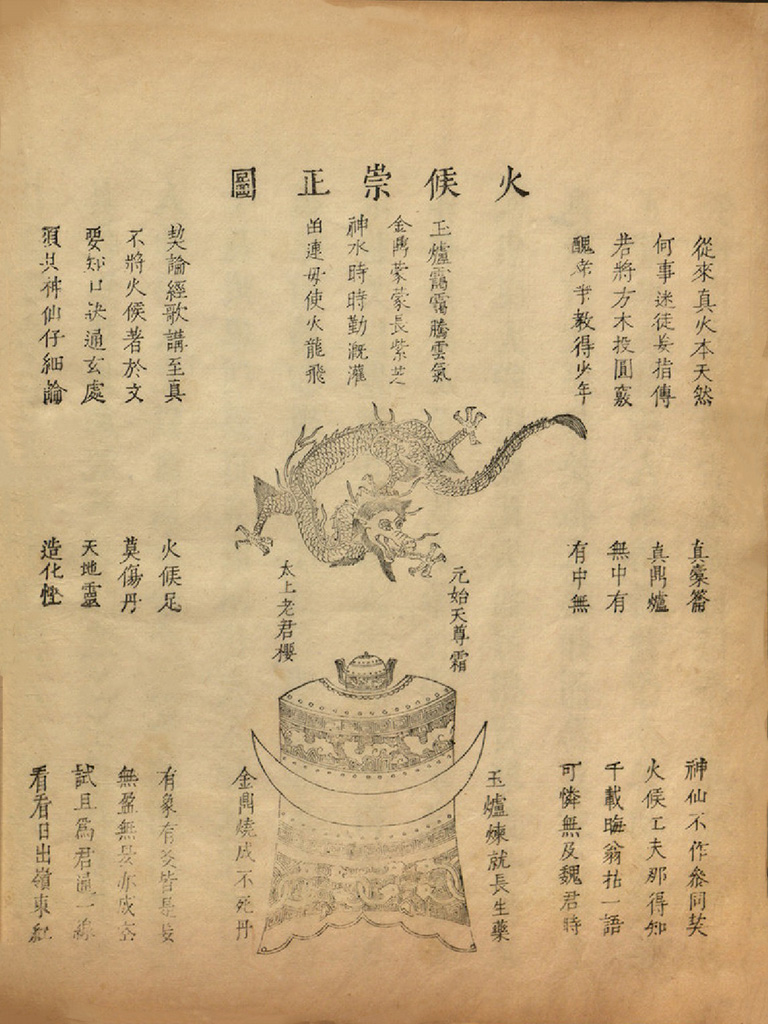 火候崇正圖
從來真火本天然
何事迷徒妄指傳
若將方木投圓竅
醜老爭教得少年
玉爐靄靄騰雲氣
金鼎蒙蒙長紫芝
神水時時勤溉灌
留連毋使火龍飛
契論經歌講至真
不將火候著於文
要知口訣通玄處
須共神仙仔細論
真橐籥
真鼎爐
無中有
有中無
火候足
莫傷丹
天地靈
造化慳
元始天尊霜
太上老君櫻
神仙不作參同契
火候工夫那得知
千載晦翁拈一語
可憐無及魏君時
玉爐煉就長生藥
金鼎燒成不死丹
有象有爻皆是妄
無盈無昃亦成空
試且為君通一線
看看日出嶺東紅